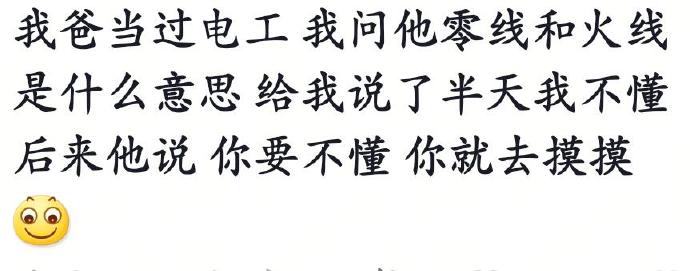 我爸当过电工 我问他零线和火线
是什么意思 给我说了半天我不懂
后来他说 你要不懂 你就去摸摸